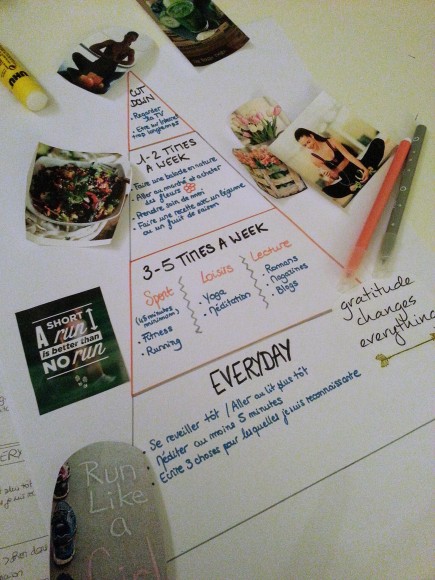 UHU
CUT
DOWN
• Regarder
la TV
• Etre sur Internet
trop longtemps
1-2 TIMES
A WEEK
• Faire une balade en nature
• Aller au marché et acheter
des fleurs
• Prendre soin de moi
• Faire une recette avec un légume
ou un fruit de saison
3-5 TIMES A WEEK
Sport
(45 minutes
minimum)
• Fitness
• Running
Loisirs
• Yoga
• Méditation
Lecture
• Romans
• Magazines
• Blogs
EVERYDAY
• Se reveiller tôt / Aller au lit plus tôt
• Méditer au moins 5 minutes
• Ecrire 3 choses pour lesquelles je suis reconnaissante
gratitude
changes
everything
A SHORT
run
is better than
NO run
Run
Like
a
Girl